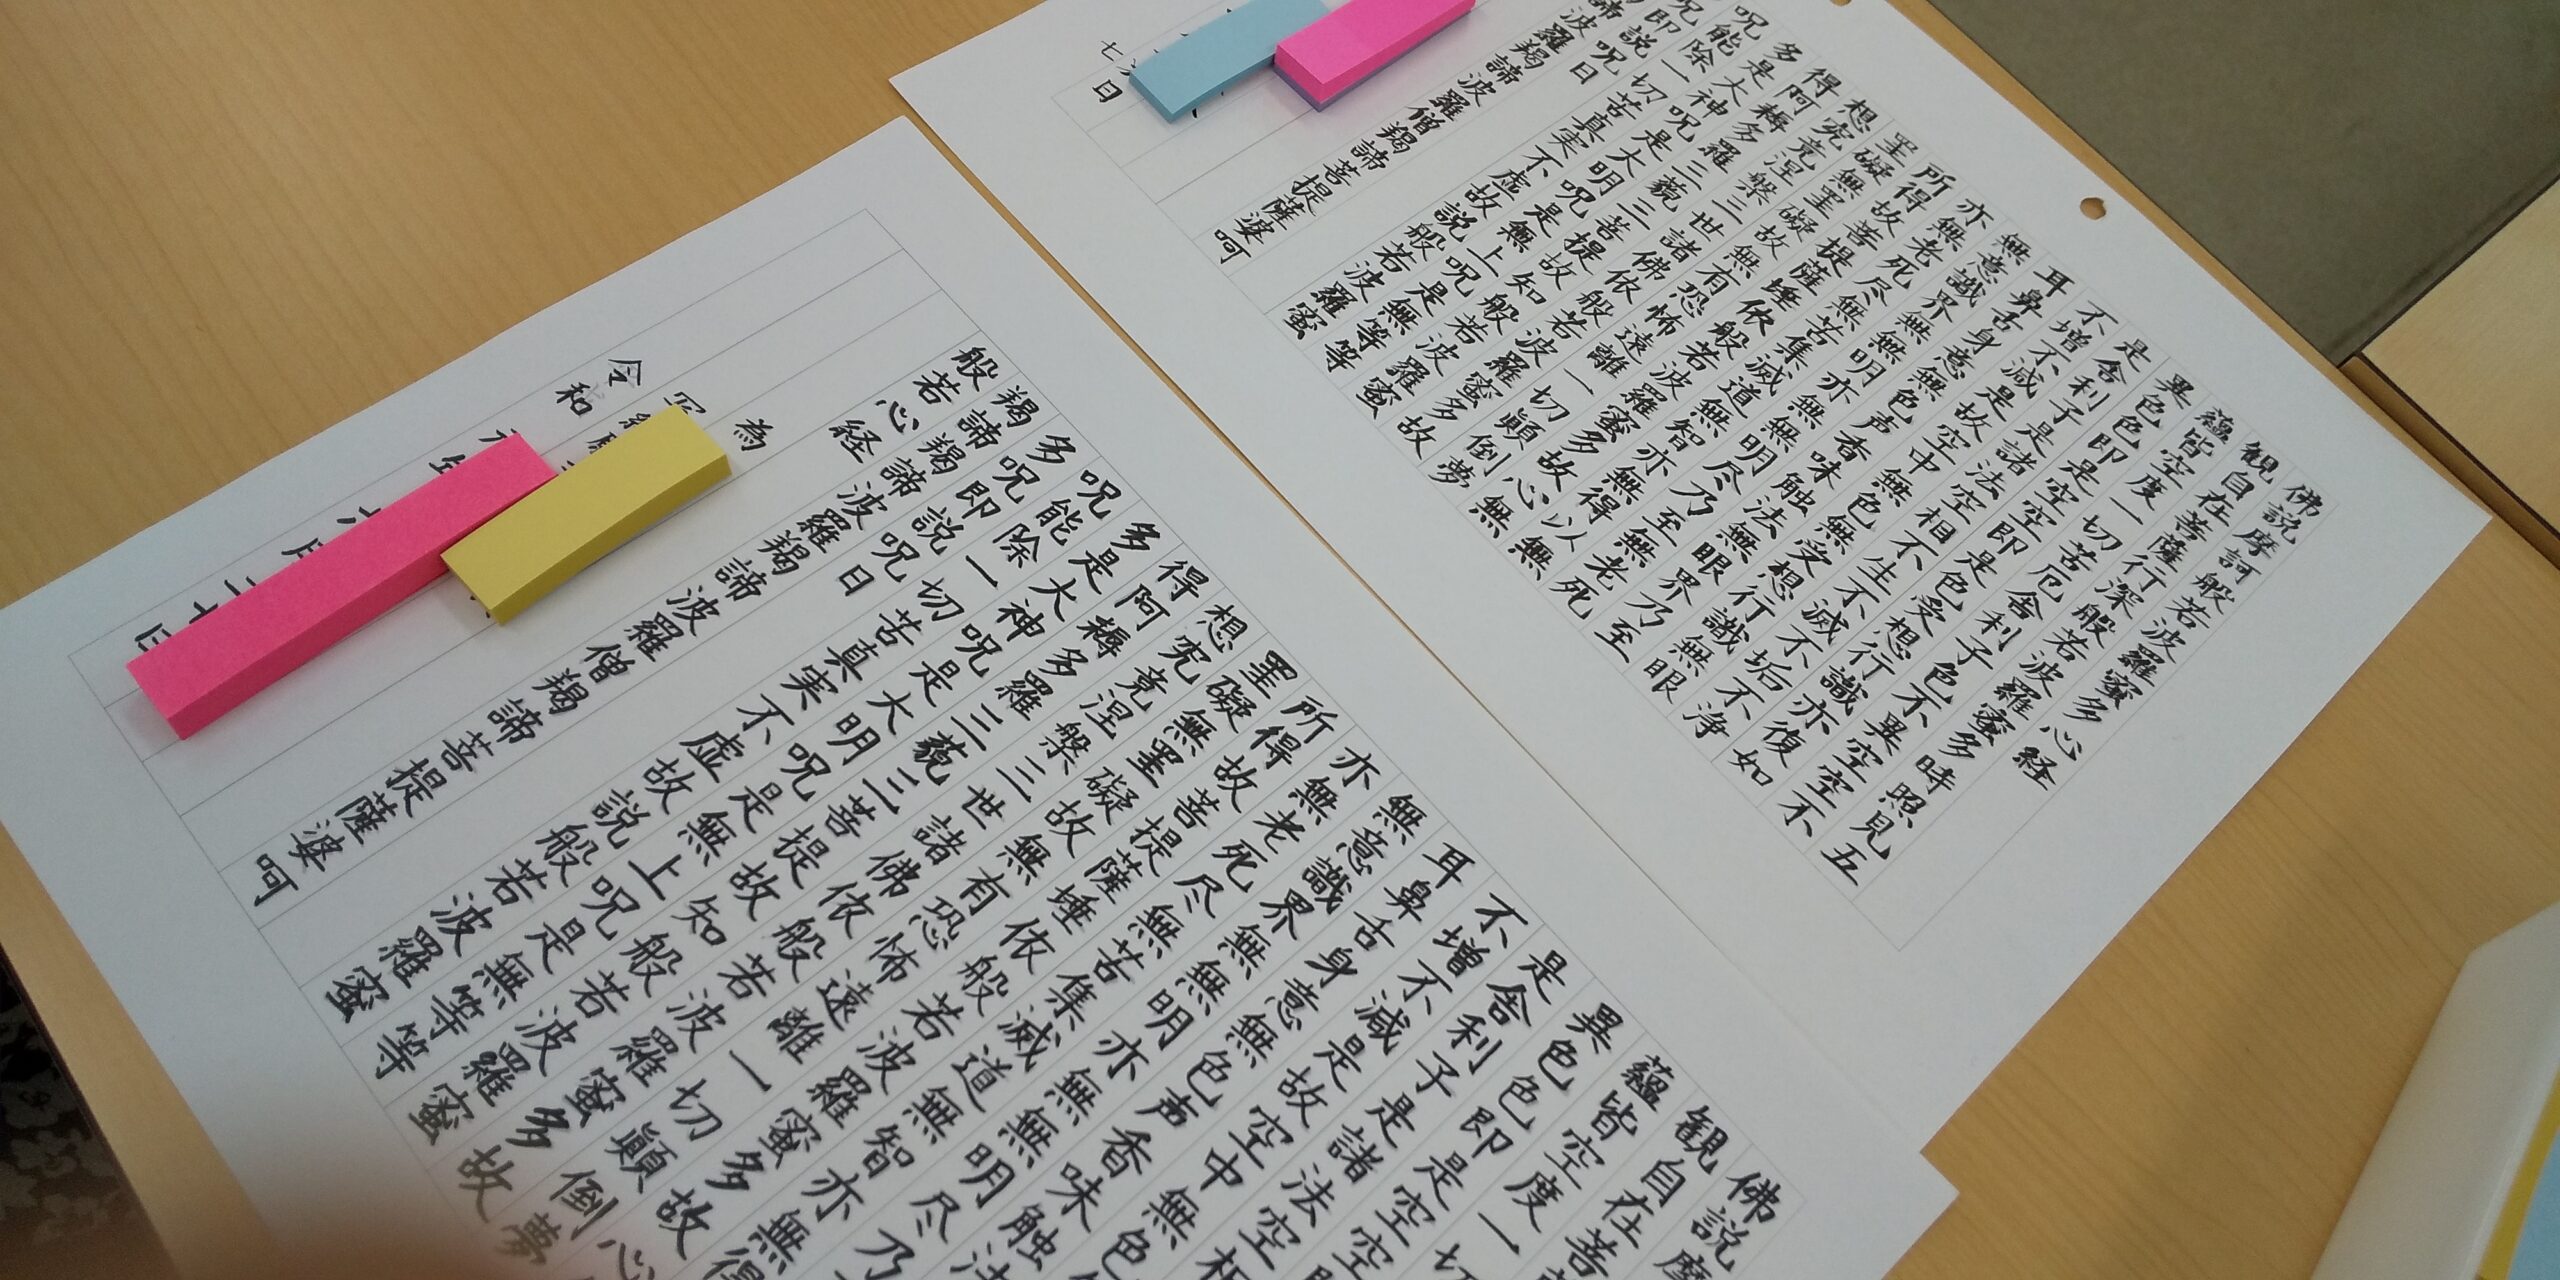 佛説摩訶般若波羅蜜多心経
観自在菩薩行深般若波羅蜜多時照見五
蘊皆空度一切苦厄舎利子色不異空空不
異色色即是空空即是色受想行識亦復如
是舎利子是諸法空相不生不滅不垢不浄
不増不減是故空中無色無受想行識無眼
耳鼻舌身意無色声香味触法無眼界乃至
無意識界無無明亦無無明尽乃至無老死
亦無老死尽無苦集滅道無智亦無得以無
所得故菩提薩埵依般若波羅蜜多故心無
罣礙無罣礙故無有恐怖遠離一切顛倒夢
想究竟涅槃三世諸佛依般若波羅蜜多故
得阿耨多羅三藐三菩提故知般若波羅蜜
多是大神呪是大明呪是無上呪是無等等
呪能除一切苦真実不虚故説般若波羅蜜
呪即説呪曰
諦波羅羯諦波羅僧羯諦菩提薩婆呵
七日
佛説摩
観自在菩
蘊皆空度一切
異色色即是空空
是舎利子是諸法空
不増不減是故空中無
耳鼻舌身意無色声香味触
無意識界無無明亦無無明尽乃
亦無老死尽無苦集滅道無智亦無得
所得故菩提薩埵依般若波羅蜜多故心
罣礙無罣礙故無有恐怖遠離一切顛倒夢
想究竟涅槃三世諸佛依般若波羅蜜多故
得阿耨多羅三藐三菩提故知般若波羅蜜
多是大神呪是大明呪是無上呪是無等等
呪能除一切苦真実不虚故説般若波羅蜜
多呪即説呪曰
羯諦羯諦波羅羯諦波羅僧羯諦菩提薩婆呵
般若心経
為
令和